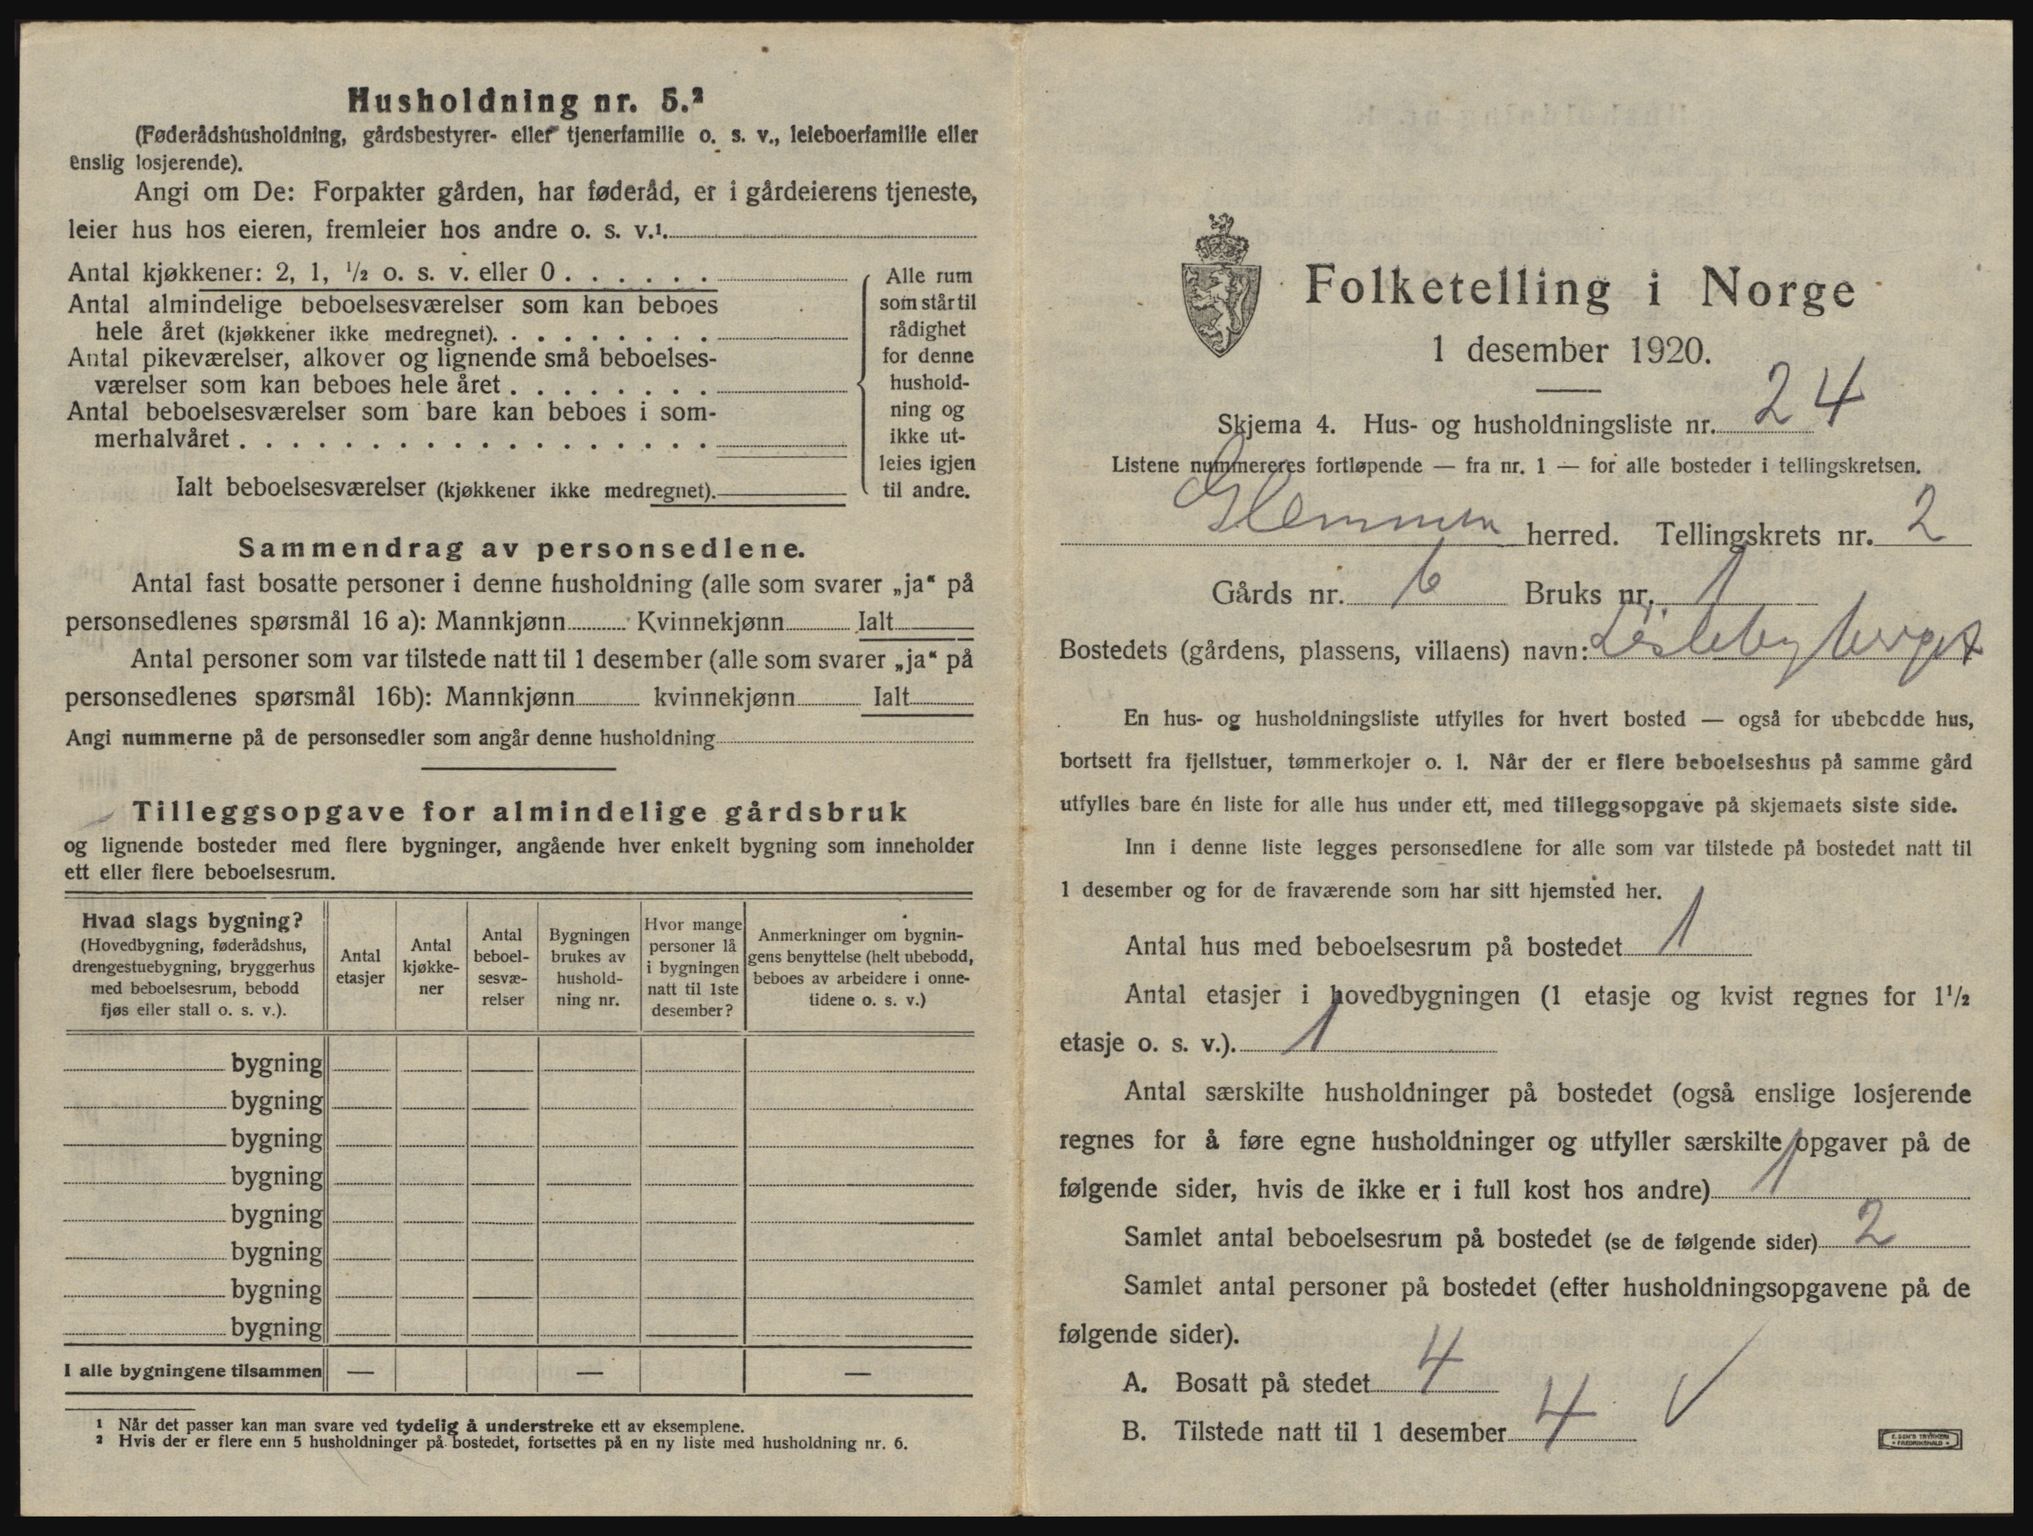 Husholdning nr. 5.²
(Føderådshusholdning, gårdsbestyrer- eller tjenerfamilie o. s. v., leieboerfamilie eller
enslig losjerende).
Angi om De: Forpakter gården, har føderåd, er i gårdeierens tjeneste,
leier hus hos eieren, fremleier hos andre o. s. v.¹.
Antal kjøkkener: 2, 1, ½ o. s. v. eller 0 . . . . . .
Antal almindelige beboelsesværelser som kan beboes
hele året (kjøkkener ikke medregnet). . . . . . . . .
Antal pikeværelser, alkover og lignende små beboelses-
værelser som kan beboes hele året . . . . . . . .
Antal beboelsesværelser som bare kan beboes i som-
merhalvåret . . . . . . . . . . . . . . . . . .
Ialt beboelsesværelser (kjøkkener ikke medregnet).
Alle rum
som står til
rådighet
for denne
hushold-
ning og
ikke ut-
leies igjen
til andre.
Sammendrag av personsedlene.
Antal fast bosatte personer i denne husholdning (alle som svarer „ja“ på
personsedlenes spørsmål 16 a): Mannkjønn Kvinnekjønn Ialt
Antal personer som var tilstede natt til 1 desember (alle som svarer „ja“ på
personsedlenes spørsmål 16b): Mannkjønn kvinnekjønn Ialt
Angi nummerne på de personsedler som angår denne husholdning
Tilleggsopgave for almindelige gårdsbruk
og lignende bosteder med flere bygninger, angående hver enkelt bygning som inneholder
ett eller flere beboelsesrum.
Hvad slags bygning?
(Hovedbygning, føderådshus,
drengestuebygning, bryggerhus
med beboelsesrum, bebodd
fjøs eller stall o. s. v.).
Antal
etasjer
Antal
kjøkke-
ner
Antal
beboel-
sesvæ-
relser
Bygningen
brukes av
hushold-
ning nr.
Hvor mange
personer lå
i bygningen
natt til 1ste
desember?
Anmerkninger om bygnin-
gens benyttelse (helt ubebodd,
beboes av arbeidere i onne-
tidene o. s. v.)
bygning
bygning
bygning
bygning
bygning
bygning
bygning
bygning
I alle bygningene tilsammen — — —
¹ Når det passer kan man svare ved tydelig å understreke ett av eksemplene.
² Hvis der er flere enn 5 husholdninger på bostedet, fortsettes på en ny liste med husholdning nr. 6.
Folketelling i Norge
1 desember 1920.
Skjema 4. Hus- og husholdningsliste nr. 24
Listene nummereres fortløpende — fra nr. 1 — for alle bosteder i tellingskretsen.
Glemmen herred. Tellingskrets nr. 2
Gårds nr. 6 Bruks nr. 1
Bostedets (gårdens, plassens, villaens) navn: Lislebyberget
En hus- og husholdningsliste utfylles for hvert bosted — også for ubebodde hus,
bortsett fra fjellstuer, tømmerkojer o. l. Når der er flere beboelseshus på samme gård
utfylles bare én liste for alle hus under ett, med tilleggsopgave på skjemaets siste side.
Inn i denne liste legges personsedlene for alle som var tilstede på bostedet natt til
1 desember og for de fraværende som har sitt hjemsted her.
Antal hus med beboelsesrum på bostedet 1
Antal etasjer i hovedbygningen (1 etasje og kvist regnes for 1½
etasje o. s. v.). 1
Antal særskilte husholdninger på bostedet (også enslige losjerende
regnes for å føre egne husholdninger og utfyller særskilte opgaver på de
følgende sider, hvis de ikke er i full kost hos andre) 1
Samlet antal beboelsesrum på bostedet (se de følgende sider) 2
Samlet antal personer på bostedet (efter husholdningsopgavene på de
følgende sider).
A. Bosatt på stedet 4
B. Tilstede natt til 1 desember 4